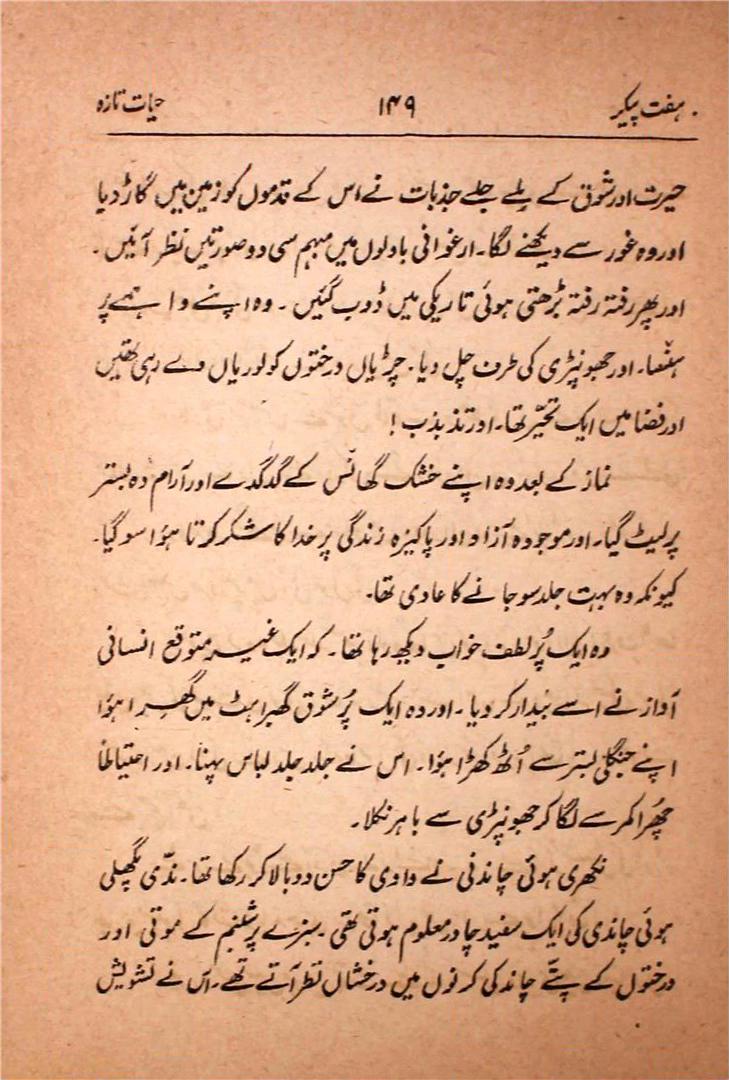 ہفت پیکر ۱۴۹ حیات تازہ
حیرت اور شوق کے ملے جلے جذبات نے اس کے قدموں کو زمین میں گاڑ دیا
اور وہ غور سے دیکھنے لگا۔ ارغوانی بادلوں میں مبہم سی دو صورتیں نظر آئیں۔
اور پھر رفتہ رفتہ بڑھتی ہوئی تاریکی میں ڈوب گئیں۔ وہ اپنے واہمے پر
ہنسا۔ اور جھونپڑی کی طرف چل دیا۔ چڑیاں درختوں کو لوریاں دے رہی تھیں
اور فضا میں ایک تحیّر تھا۔ اور تذبذب!
نماز کے بعد وہ اپنے خشک گھانس کے گدگدے اور آرام دہ بستر
پر لیٹ گیا۔ اور موجودہ آزاد اور پاکیزہ زندگی پر خدا کا شکر کرتا ہؤا سو گیا۔
کیونکہ وہ بہت جلد سو جانے کا عادی تھا۔
وہ ایک پُر لطف خواب دیکھ رہا تھا۔ کہ ایک غیر متوقع انسانی
آواز نے اسے بیدار کر دیا۔ اور وہ ایک پُر شوق گھبراہٹ میں گھرا ہؤا
اپنے جنگلی بستر سے اُٹھ کھڑا ہؤا۔ اس نے جلد جلد لباس پہنا۔ اور احتیاطاً
چھُرا کمر سے لگا کر جھونپڑی سے باہر نکلا۔
نکھری ہوئی چاندنی نے وادی کا حسن دوبالا کر رکھا تھا۔ ندّی پگھلی
ہوئی چاندی کی ایک سفید چادر معلوم ہوتی تھی۔ سبزے پر شبنم کے موتی اور
درختوں کے پتّے چاند کی کرنوں میں درخشاں نظر آتے تھے۔ اس نے تشویش